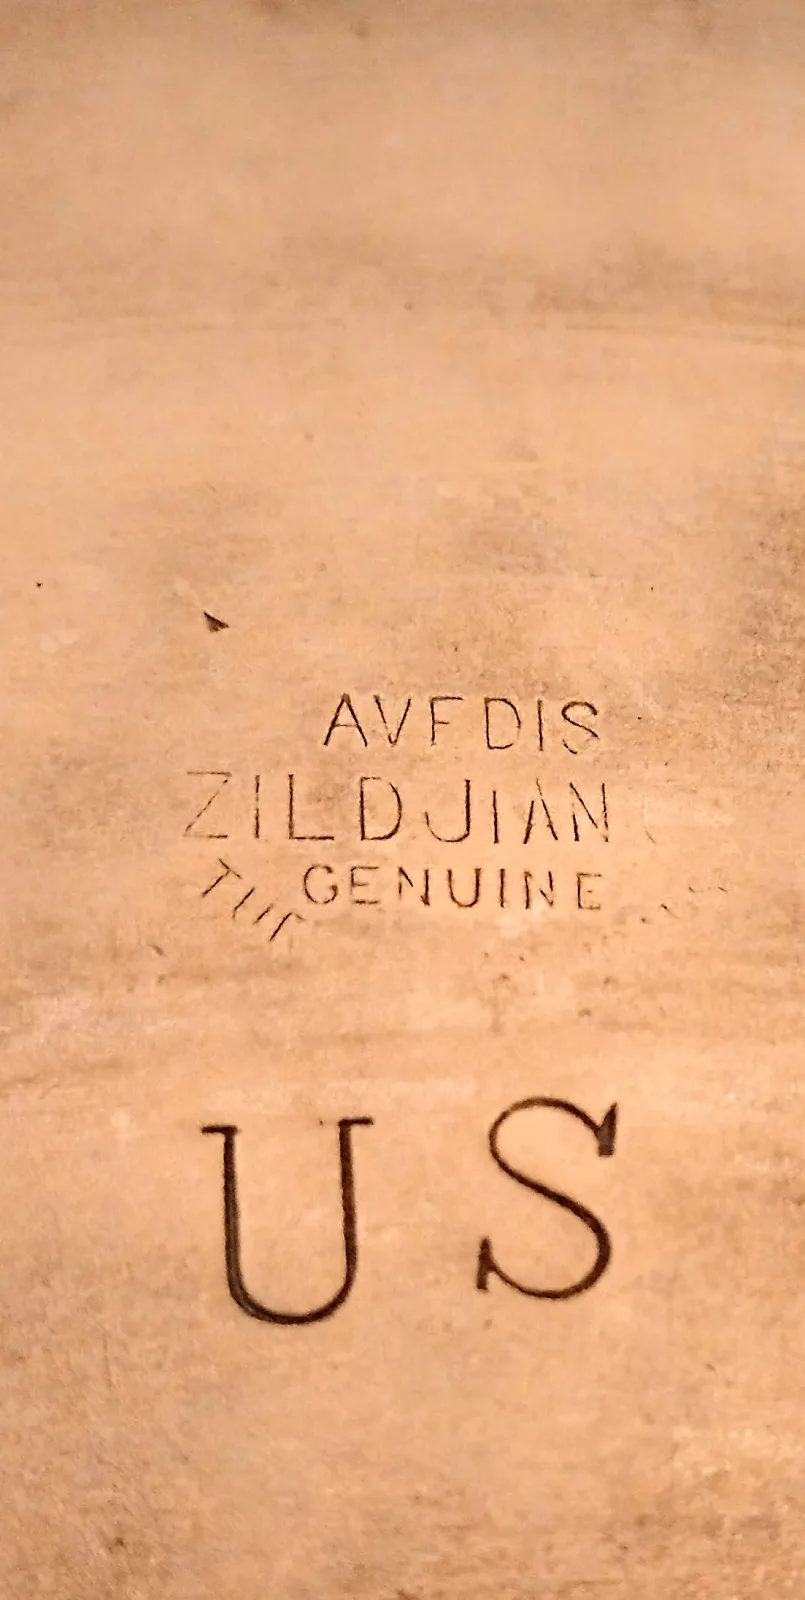 AVEDIS
ZILDJIAN
GENUINE
U S